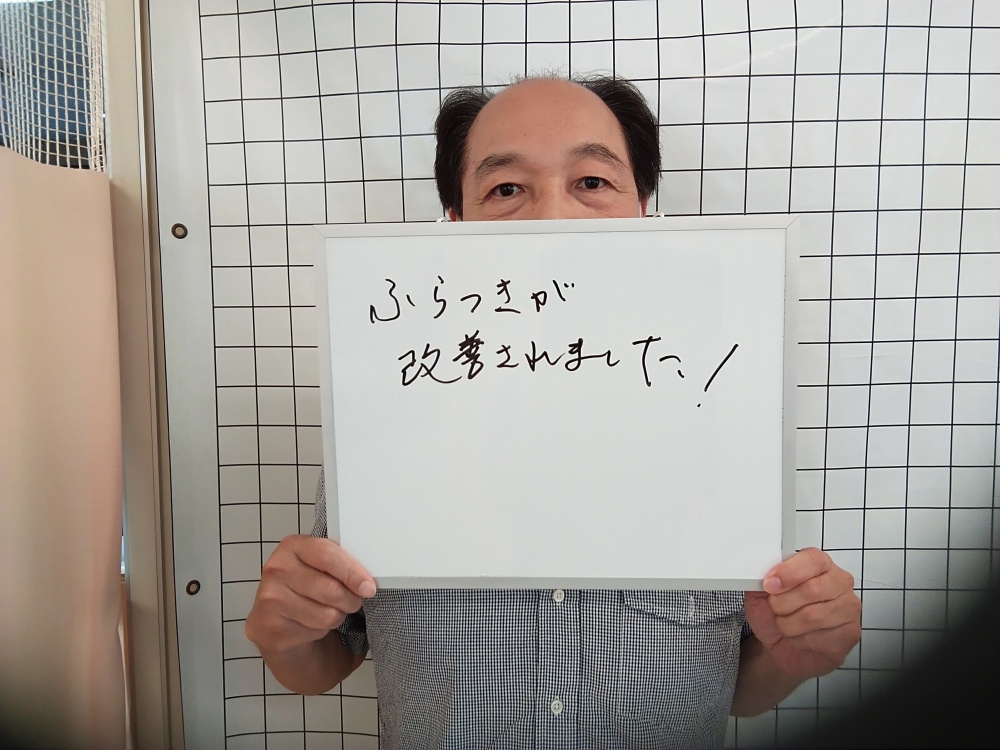 ふらつきが
改善されました!